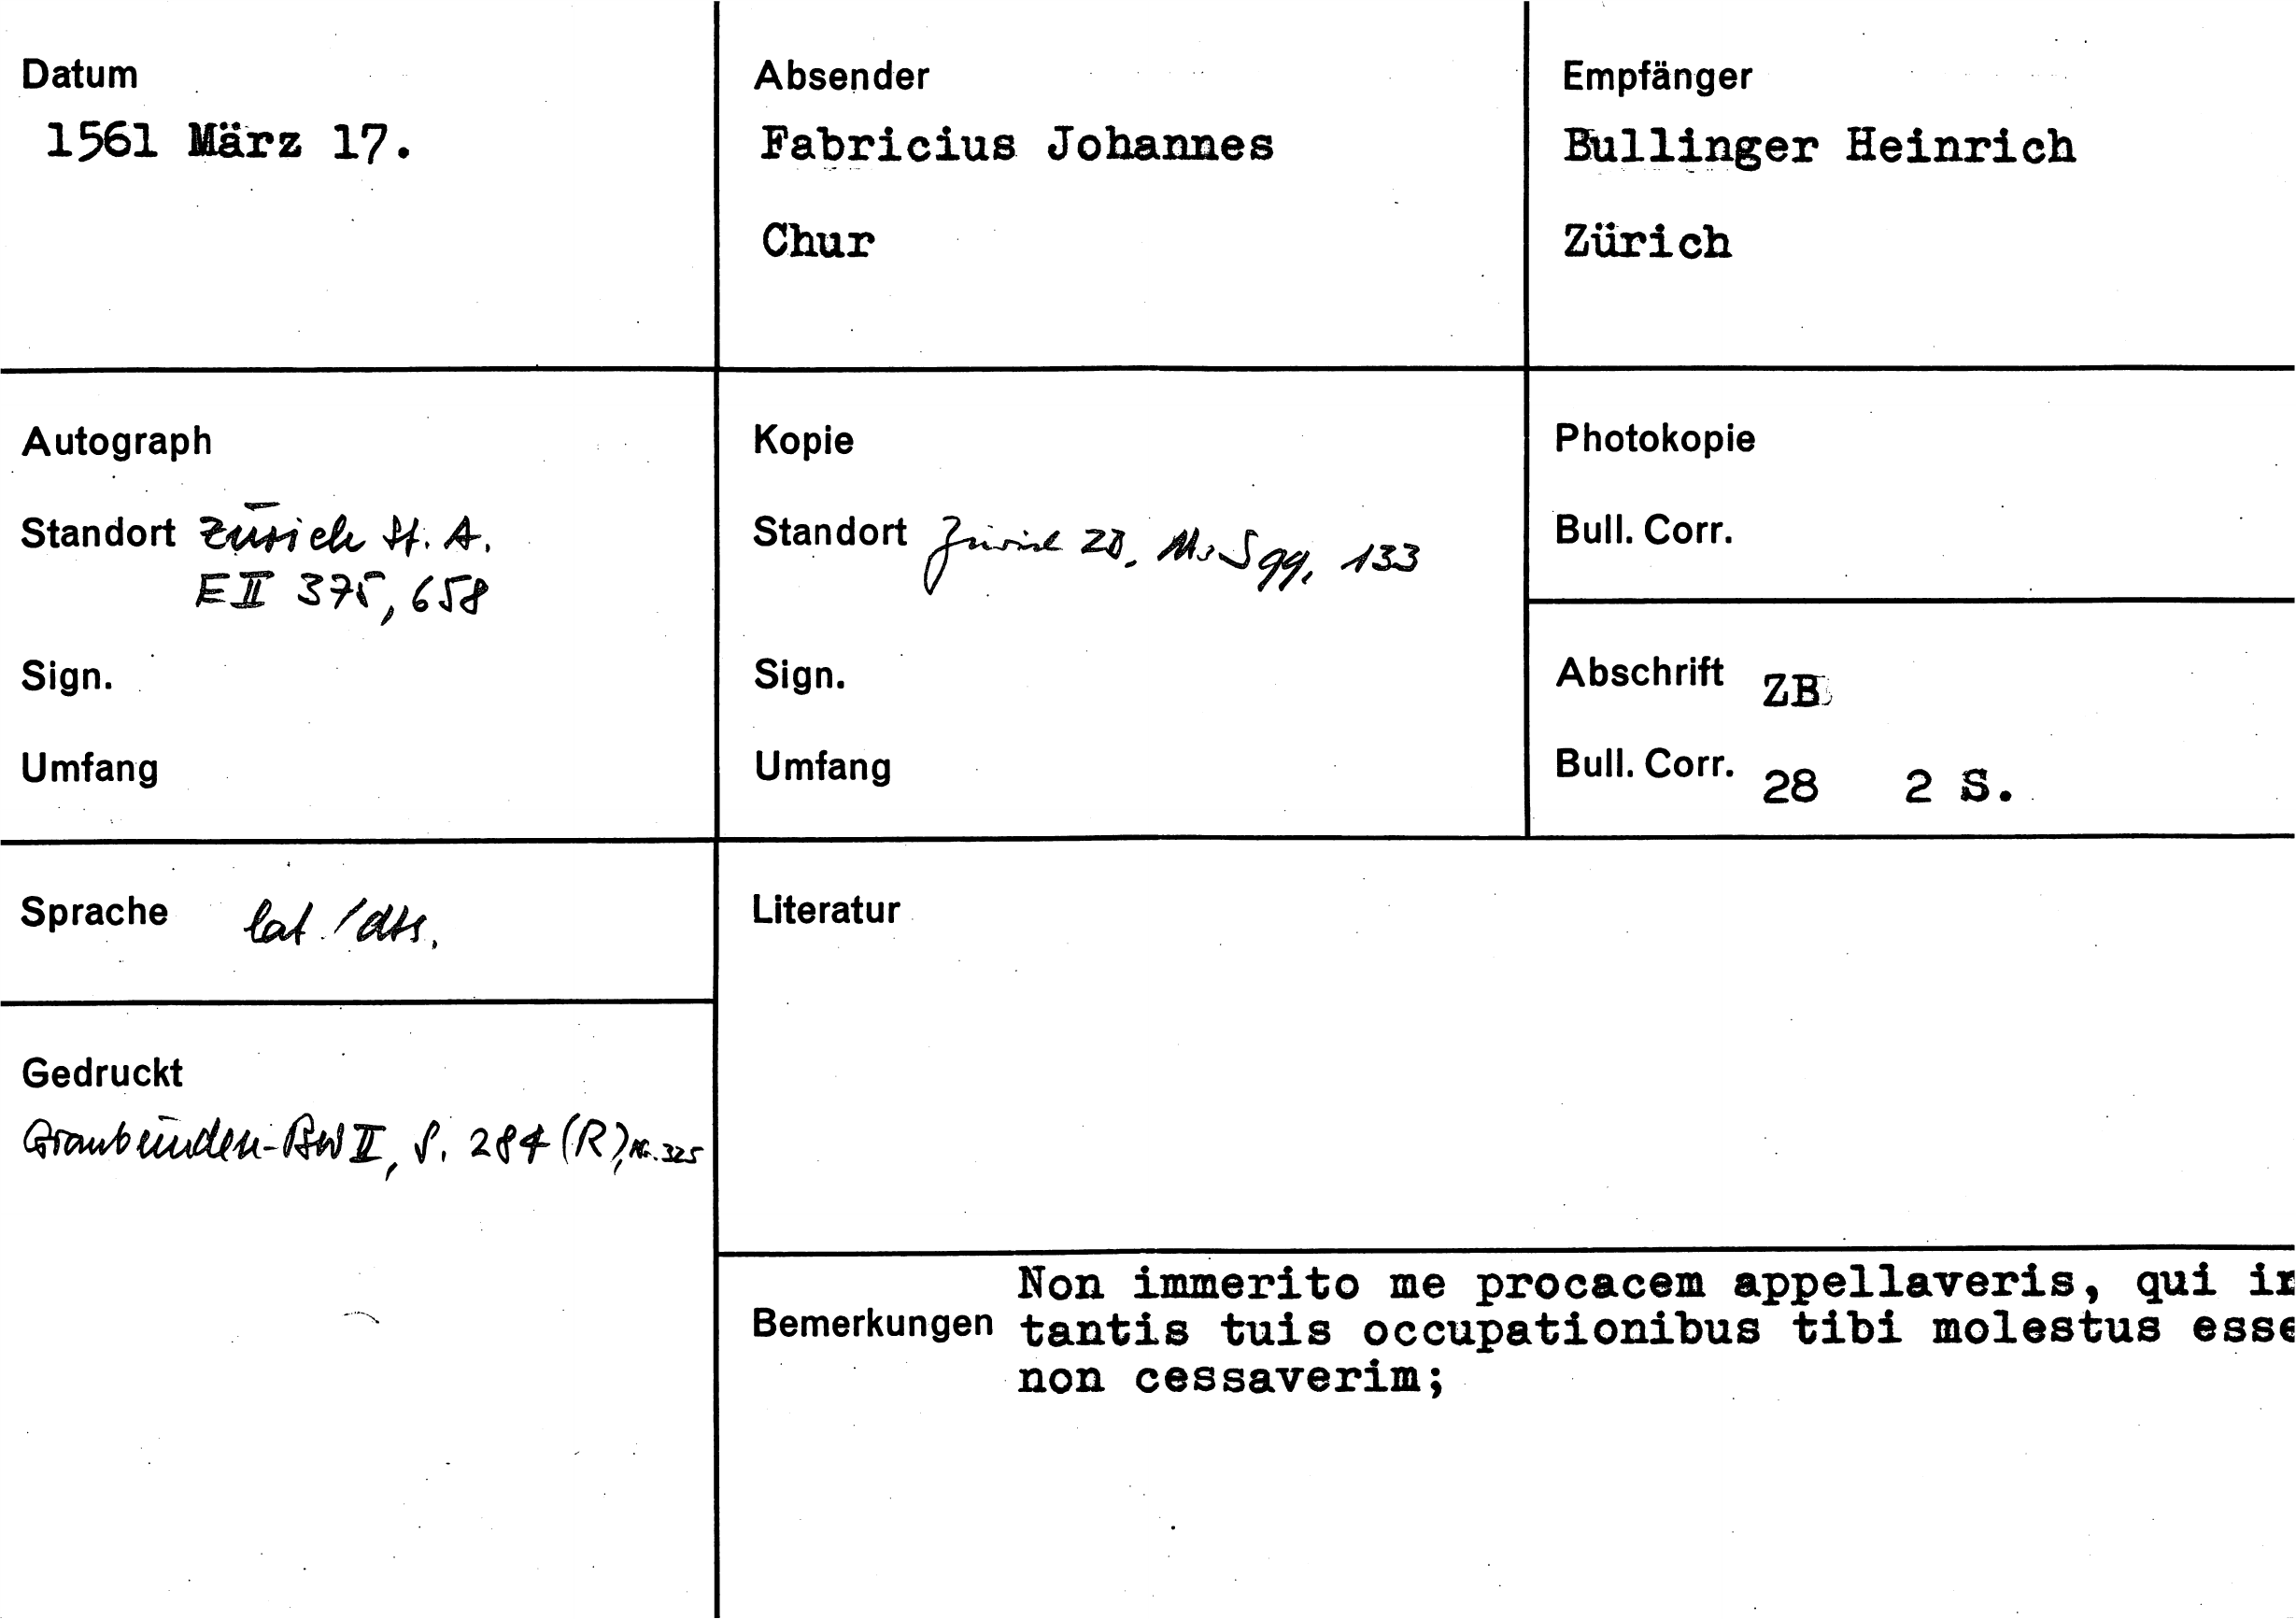 Datum
1561 März 17.
Absender
Fabricius Johannes
Chur
Empfänger
Bullinger Heinrich
Zürich
Autograph
Standort Zürich St. A.
E II 375, 658
Sign.
Umfang
Kopie
Standort Zürich ZB, Ms S 99, 133
Sign.
Umfang
Photokopie
Bull. Corr.
Abschrift ZB
Bull. Corr. 28 2 S.
Sprache lat. / dts.
Gedruckt
Graubünden-BW II, S. 284 (R), Nr. 325
Literatur
Bemerkungen
Non immerito me procacem appellaveris, qui in
tantis tuis occupationibus tibi molestus esse
non cessaverim;